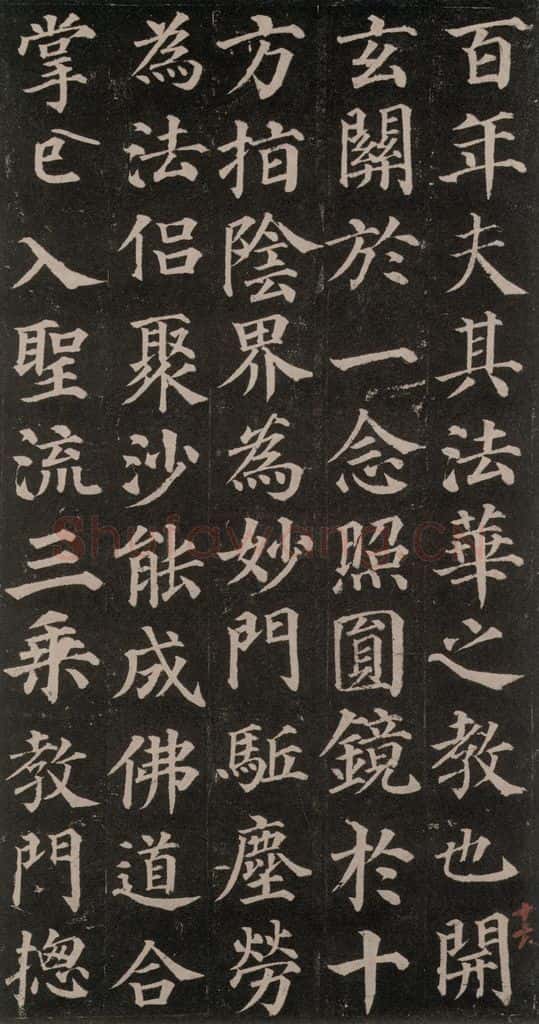 百年夫其法華之教也開
玄關於一念照圎鏡於十
方指陰界為妙門駈塵勞
為法侶聚沙能成佛道合
掌已入聖流三乗教門揔
十六
Shufawang.cn